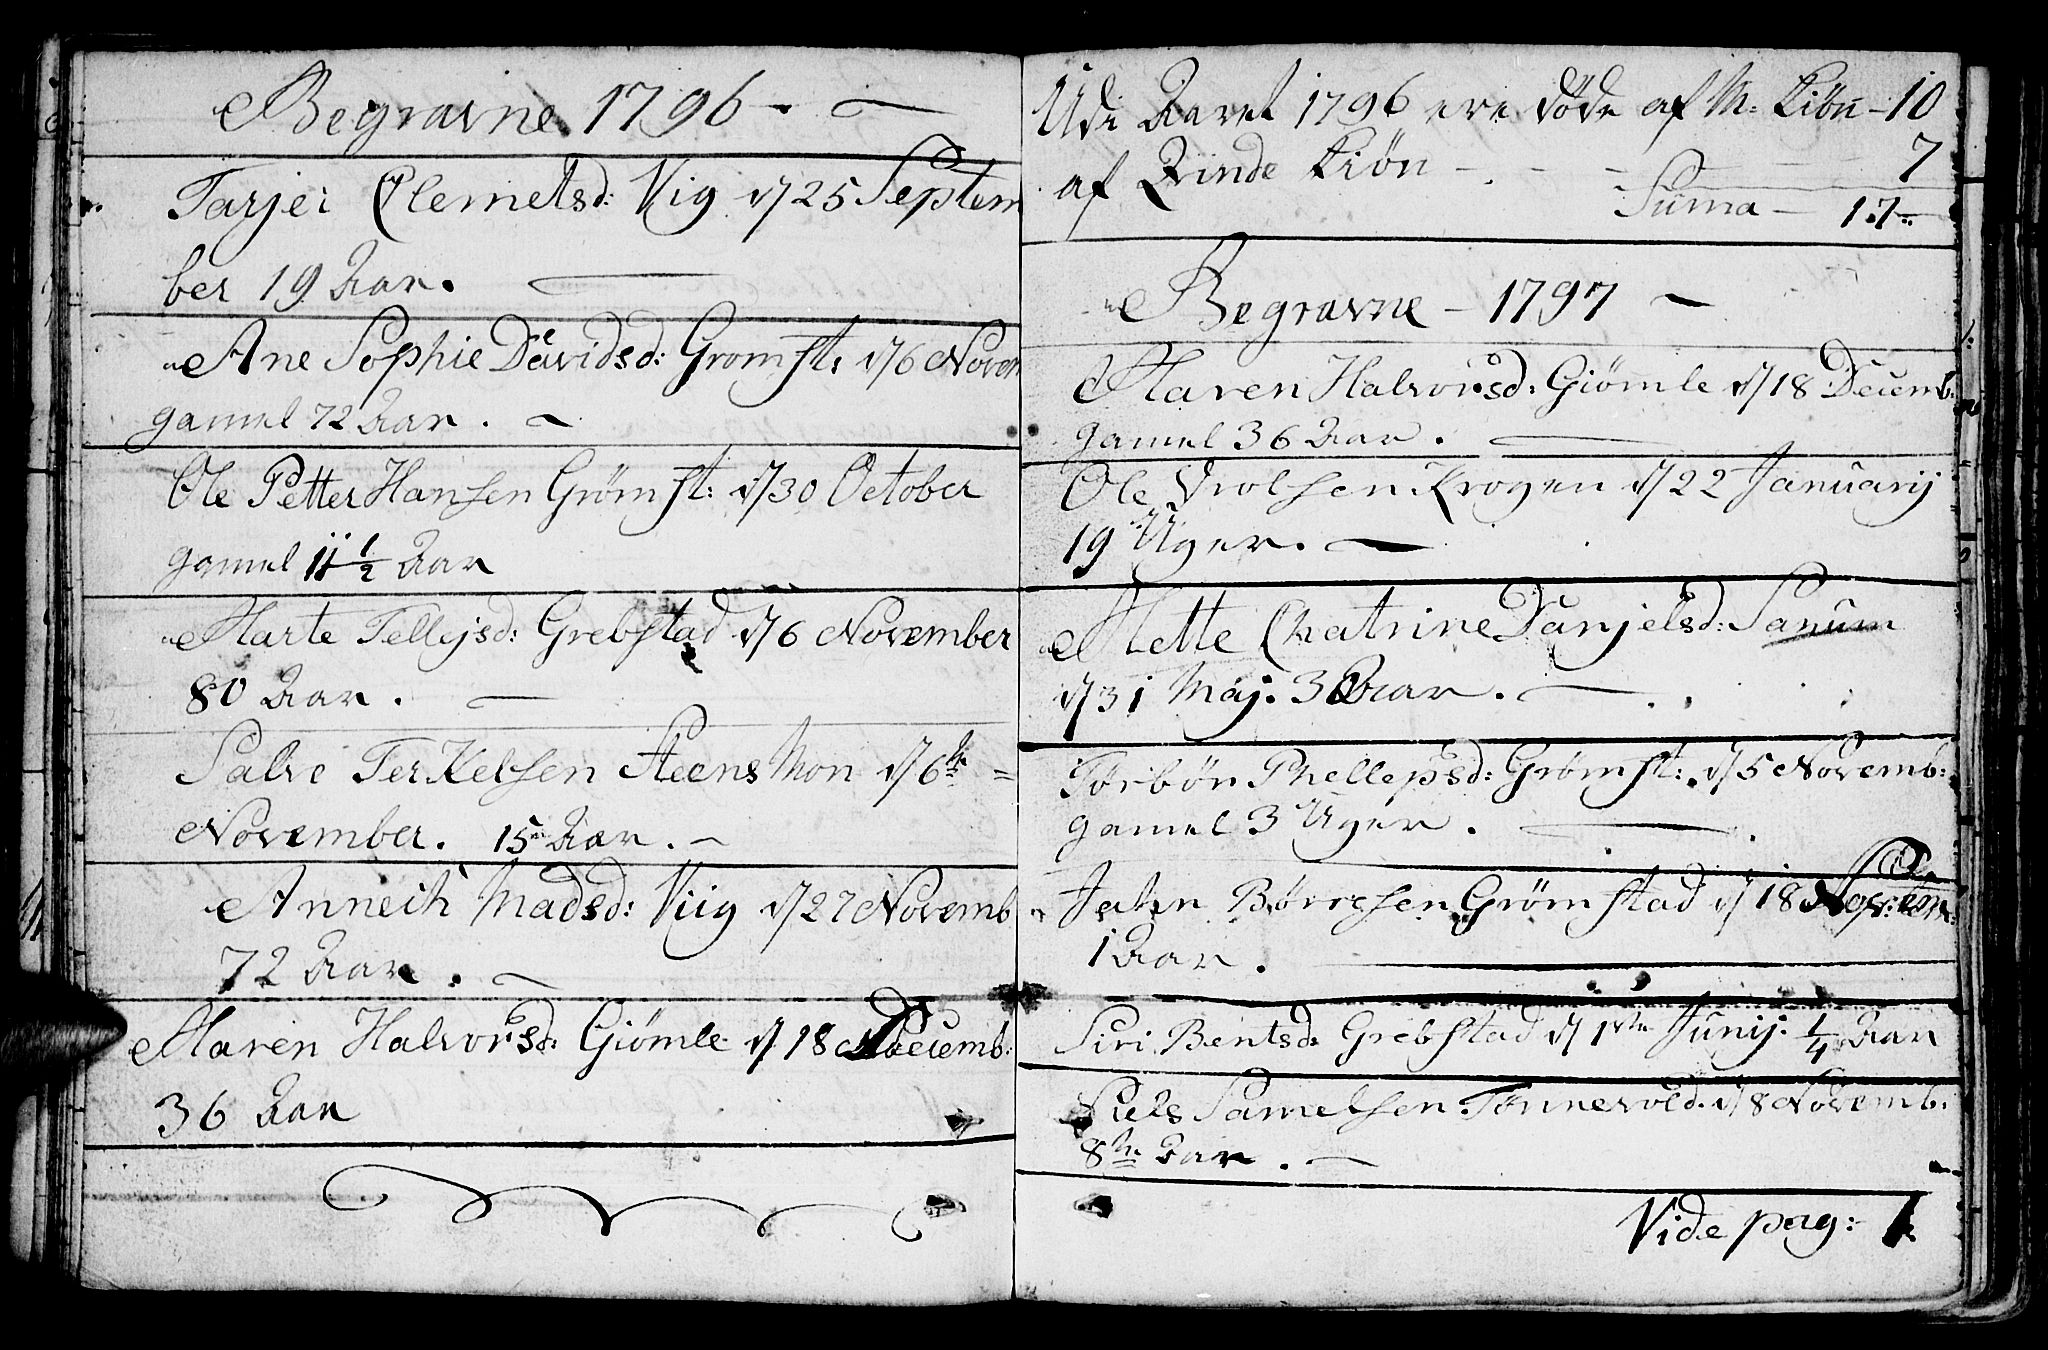 Begravne 1796
Tarjei Clemetsd: Vig d/25 Septem
ber 19 Aar.
Ane Sophie Davidsd: Gromst: d/6 Novem
gamel 72 Aar.
Ole Petter Hansen Grømst: d/30 October
gamel 11 1/2 Aar
Marte Tellejsd: Grebstad d/6 November
80 Aar.
Salve Terkelsen Steens Mon d/6te =
November. 15 Aar.
Annech Madsd: Viig d/27 Novemb
72 Aar.
Maren Halvorsd: Giømle d/18 Decemb:
36 Aar
Udi Aaret 1796 ere døde af M: Kiøn - 10
af Qvinde Kiøn - - - 7
Suma - 17
Begravne - 1797
Maren Halvorsd: Giømle d/18 Decemb:
gamel 36 Aar.
Ole Krogen d/22 Januarij
19 Uger.
Mette Chatrine Danjelsd: Sanum
d/31 Maj: Aar.
Torbøn Phellepsd: Grømst: d/5 Novemb:
gamel 3 Uger.
Jahn Børresen Grømstad d/18
1 Aar.
Siri Bentsd: Grebstad d/1ste Junij: 1/4 Aar
Niels Samelsen Tønnevold d/8 Novemb:
8te Aar.
Vide pag: 1